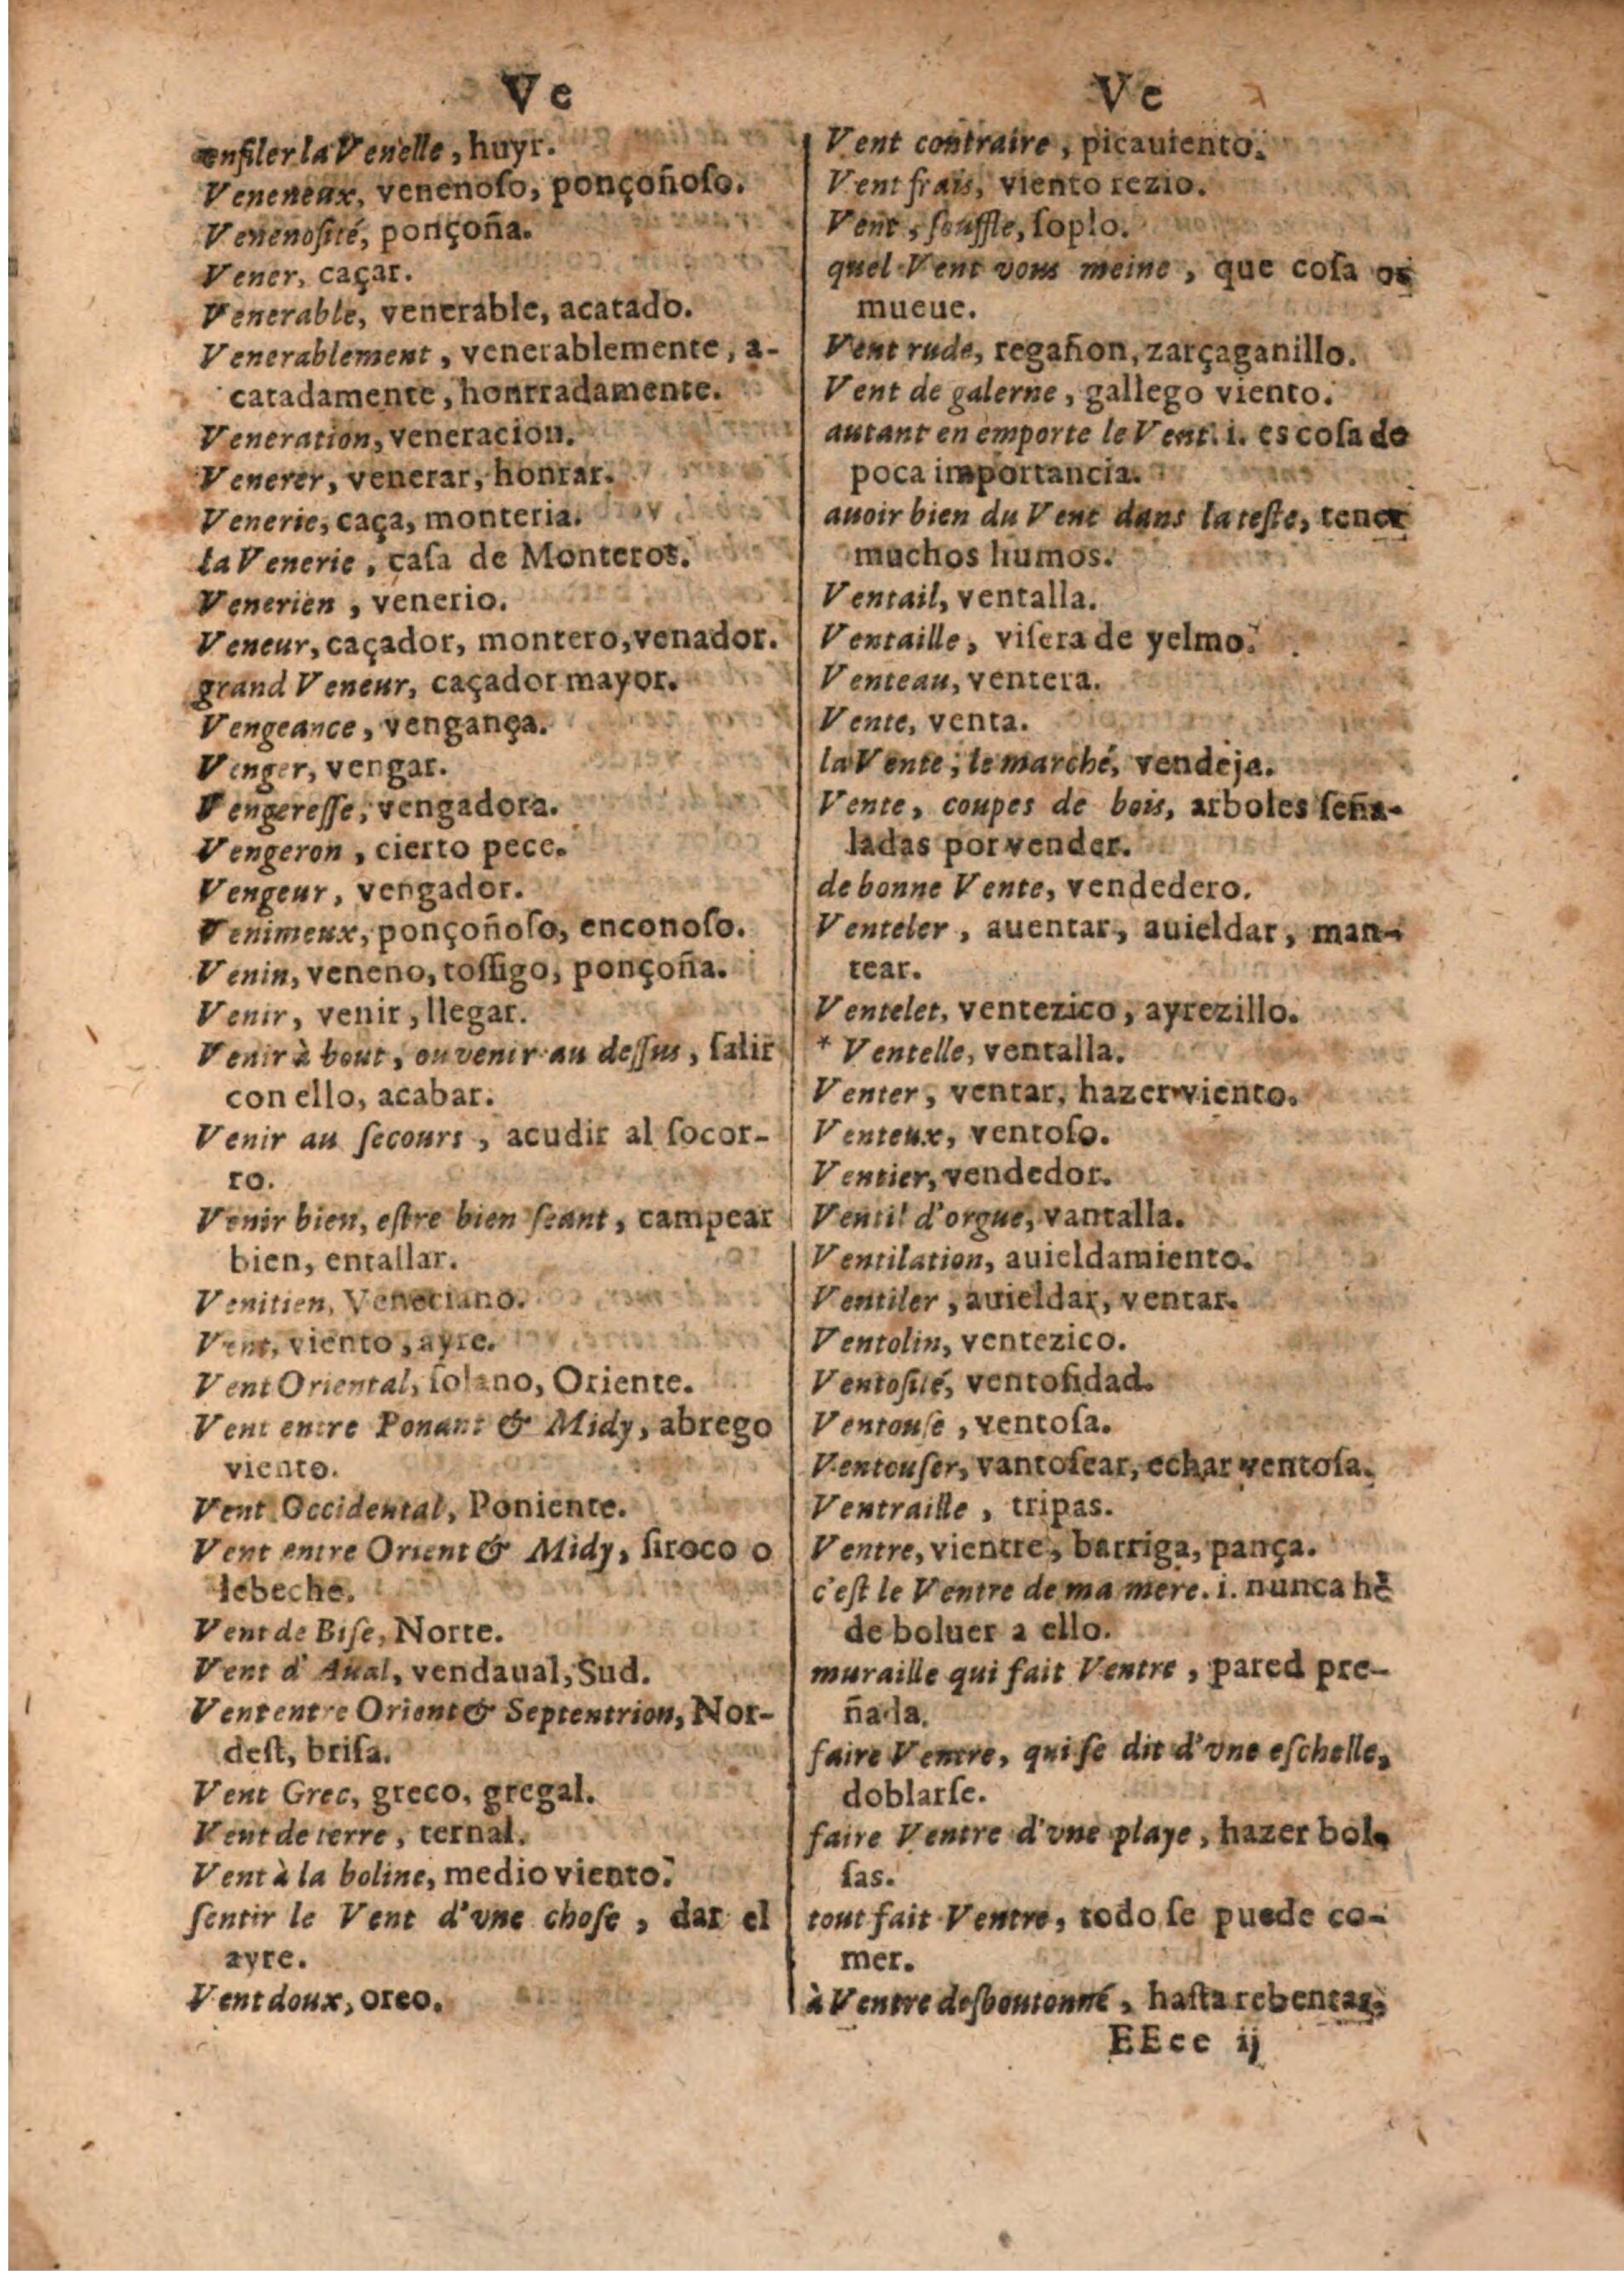 Ve
enfiler la Venelle, huyr.
Veneneux, venenoſo, ponçoñoſo.
Venenoſité, ponçoña.
Vener, caçar.
Venerable, venerable, acatado.
Venerablement, venerablemente, a-
catadamente, honrradamente.
Veneration, veneracion.
Venerer, venerar, honrar.
Venerie, caça, monteria.
la Venerie, caſa de Monteros.
Venerien, venerio.
Veneur, caçador, montero, venador.
grand Veneur, caçador mayor.
Vengeance, vengança.
Venger, vengar.
Vengereſſe, vengadora.
Vengeron, cierto pece.
Vengeur, vengador.
Venimeux, ponçoñoſo, enconoſo.
Venin, veneno, toſſigo, ponçoña.
Venir, venir, llegar.
Venir à bout, ou venir au deſſus, ſalir
con ello, acabar.
Venir au ſecours, acudir al ſocor-
ro.
Venir bien, eſtre bien ſeant, campear
bien, entallar.
Venitien, Veneciano.
Vent, viento, ayre.
Vent Oriental, ſolano, Oriente.
Vent entre Ponant & Midy, abrego
viento.
Vent Occidental, Poniente.
Vent entre Orient & Midy, ſiroco o
lebeche.
Vent de Biſe, Norte.
Vent d'Aual, vendaual, Sud.
Vent entre Orient & Septentrion, Nor-
deſt, briſa.
Vent Grec, greco, gregal.
Vent de terre, ternal.
Vent à la boline, medio viento.
ſentir le Vent d'vne choſe, dar el
ayre.
Vent doux, oreo.
Ve
Vent contraire, picauiento.
Vent frais, viento rezio.
Vent, ſouffle, ſoplo.
quel Vent vous meine, que coſa os
mueue.
Vent rude, regañon, zarçaganillo.
Vent de galerne, gallego viento.
autant en emporte le Vent. i. es coſa de
poca importancia.
auoir bien du Vent dans la teſte, tener
muchos humos.
Ventail, ventalla.
Ventaille, viſera de yelmo.
Venteau, ventera.
Vente, venta.
la Vente, le marché, vendeja.
Vente, coupes de bois, arboles ſeña-
ladas por vender.
de bonne Vente, vendedero.
Venteler, auentar, auieldar, man-
tear.
Ventelet, ventezico, ayrezillo.
* Ventelle, ventalla.
Venter, ventar, hazer viento.
Venteux, ventoſo.
Ventier, vendedor.
Ventil d'orgue, vantalla.
Ventilation, auieldamiento.
Ventiler, auieldar, ventar.
Ventolin, ventezico.
Ventoſité, ventoſidad.
Ventouſe, ventoſa.
Ventouſer, vantoſear, echar ventoſa.
Ventraille, tripas.
Ventre, vientre, barriga, pança.
c'eſt le Ventre de ma mere. i. nunca hè
de boluer a ello.
muraille qui fait Ventre, pared pre-
ñada.
faire Ventre, qui ſe dit d'vne eſchelle,
doblarſe.
faire Ventre d'vne playe, hazer bol-
ſas.
tout fait Ventre, todo ſe puede co-
mer.
à Ventre desboutonné, haſta rebentar.
EEee ij